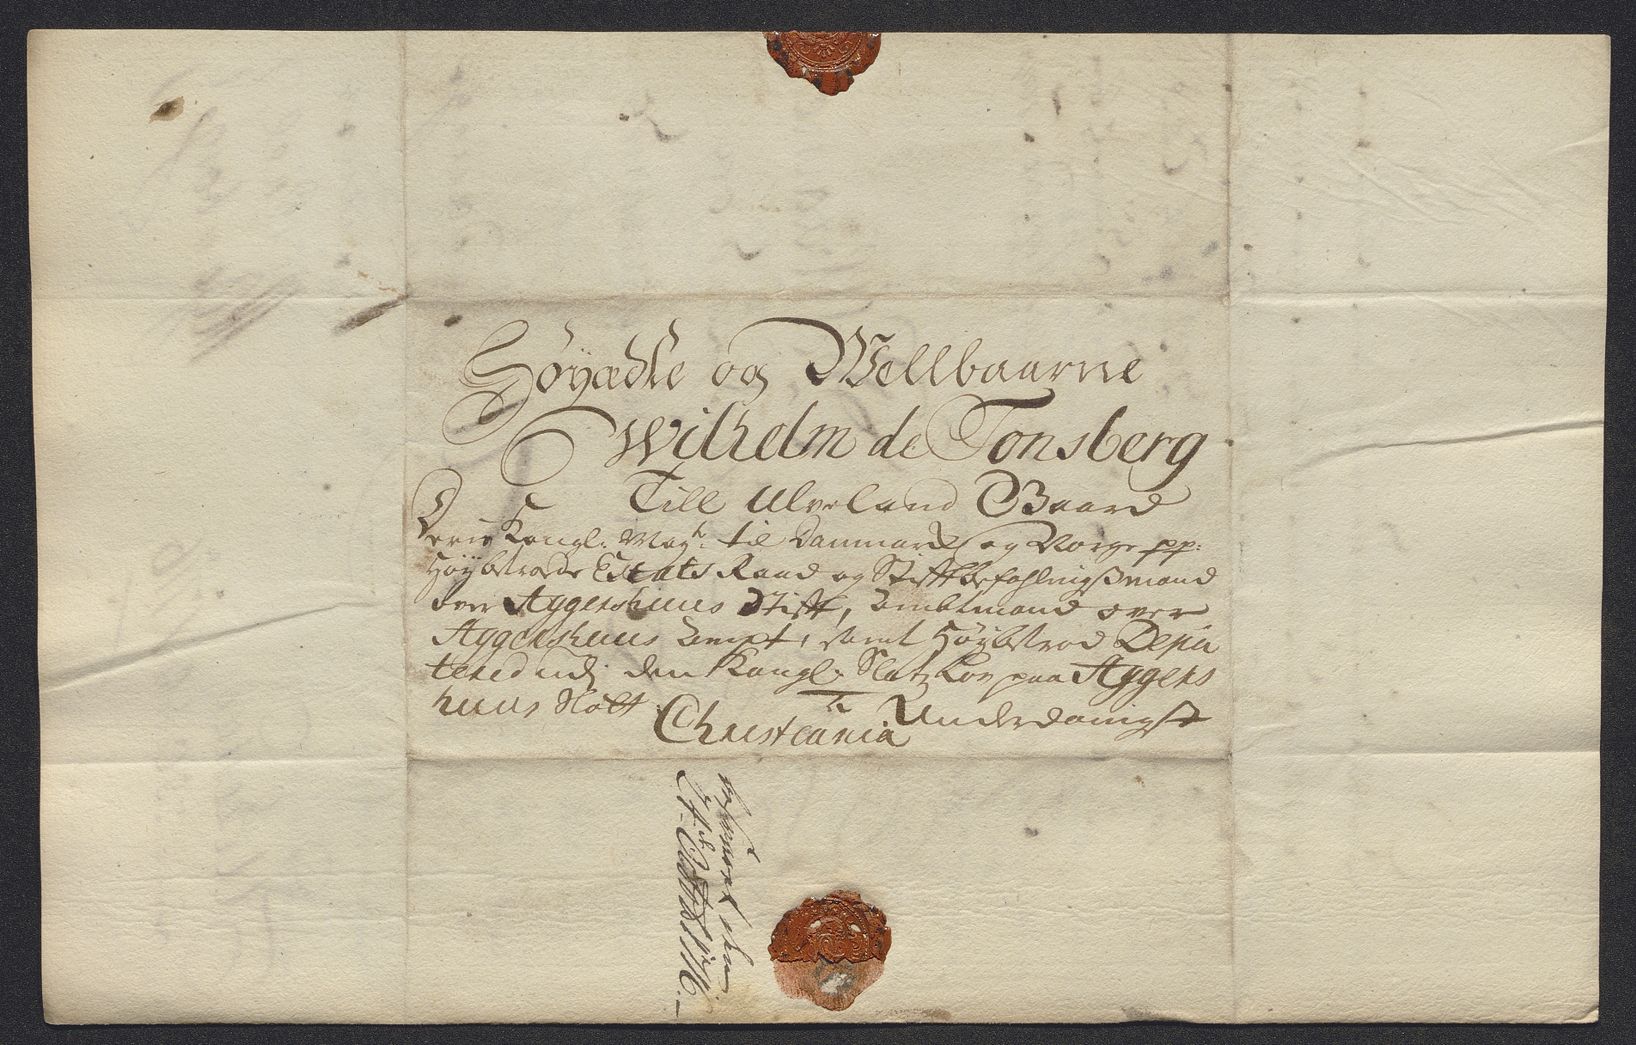 Høyædle og Wellbaarne
Wilhelm de Tonsberg
Till Ulveland Gaard
Deris Kongl: May.tz: til Danmark og Norge pp:
Høybetroede Etats Raad og Stiftbefahlingßmand
over Aggershuus Stift, Ambtmand over
Aggershuus Ampt, samt Høybetroed Depu
tered udj den Kongl: Slatz Lov paa Aggers
huus Slott
Underdanigst
Christiania